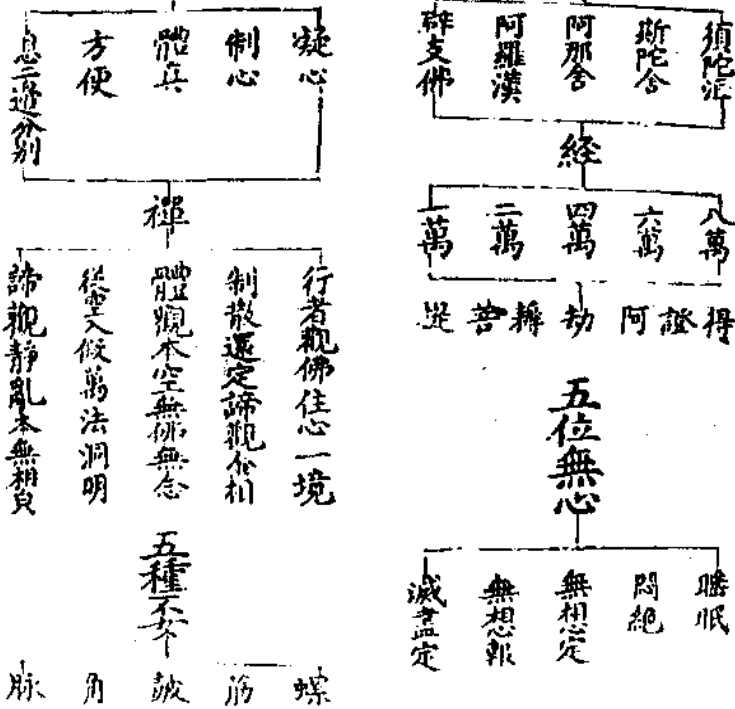 須陀洹
斯陀含
阿那含
阿羅漢
辟支佛
経
八萬
六萬
四萬
二萬
一萬
得證阿耨菩提
劫
五位無心
睡眠
悶絕
無想定
無想報
滅盡定
凝心
制心
體真
方便
息二邊分別
禪
行者觀佛住心一境
制散還定諦觀
體觀本空無佛無念
從空入假萬法洞明
諦觀靜亂本無相貌
五種不
螺
筋
角
脉